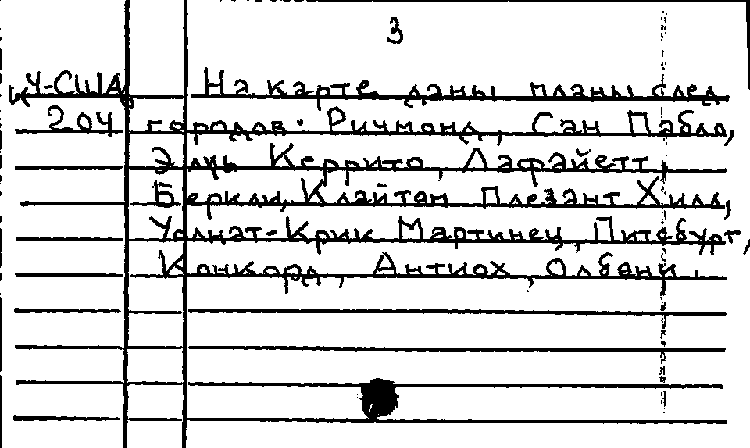 3
Ч-США На карте даны планы след
204 городов: Ричмонд, Сан Пабло,
Эль Керрито, Лафайетт,
Беркли, Клайтон Плезант Хилл,
Уолнат-Крик Мартинец, Питсбург,
Конкорд, Антиох, Олбени.